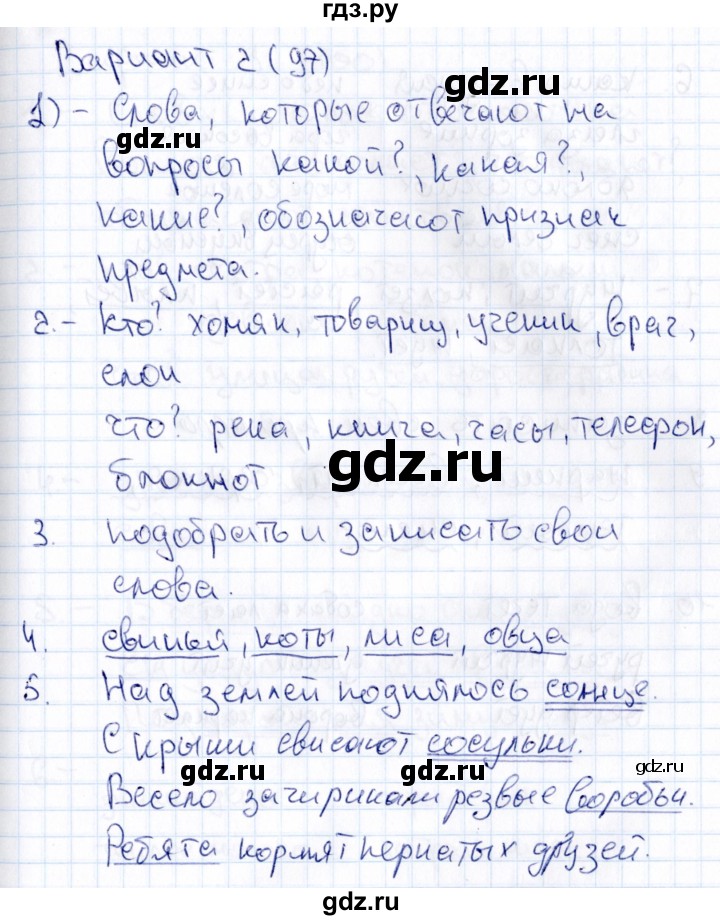 гдз.ру
Вариант 2 (97)
1) - Слова, которые отвечают на
вопросы какой?, какая?,
какие?, обозначают признак
предмета.
2. - Кто? хомяк, товарищ, ученик, врач,
слон
Что? река, книга, часы, телефон,
блокнот
3. Подобрать и записать свои
слова.
4. свинья, коты, лиса, овца
5. Над землей поднялось солнце.
С крыши свисают сосульки.
Весело зачирикали резвые воробьи.
Ребята кормят пернатых друзей.
gdz.ru
gdz.ru
gdz.ru
gdz.ru
gdz.ru
gdz.ru
gdz.ru
gdz.ru
gdz.ru
gdz.ru
gdz.ru